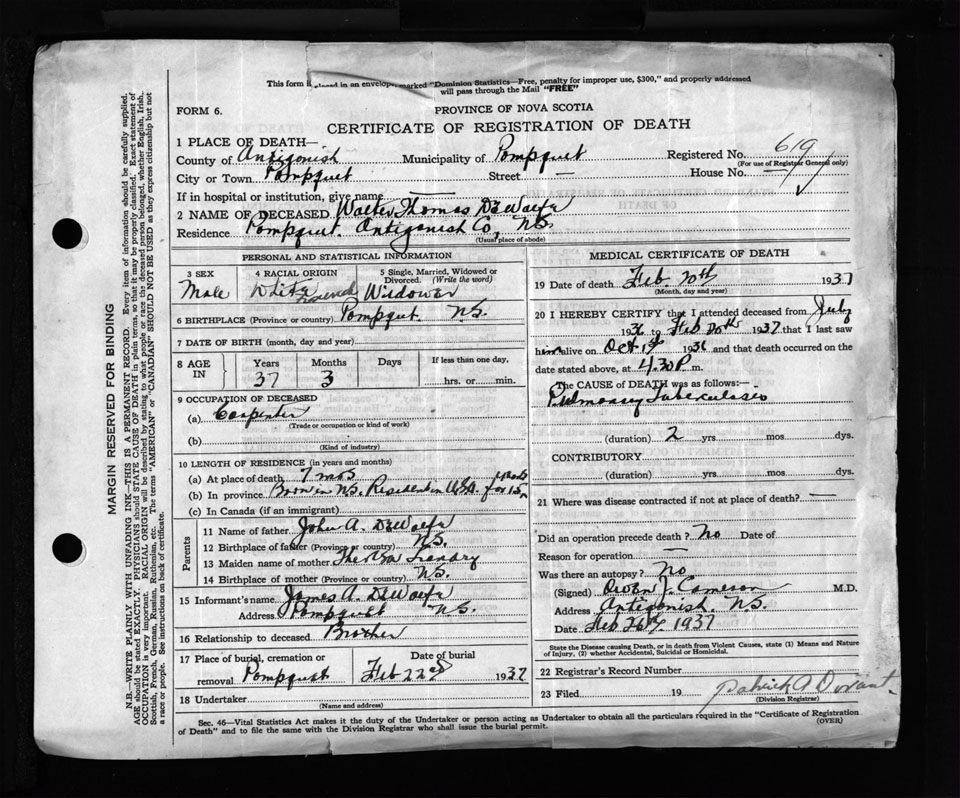 This form is placed in an envelope marked "Dominion Statistics—Free, penalty for improper use, $300," and properly addressed
will pass through the Mail "FREE"
FORM 6.
PROVINCE OF NOVA SCOTIA
CERTIFICATE OF REGISTRATION OF DEATH
1 PLACE OF DEATH—
County of Antigonish Municipality of Pompquet Registered No. 619
(For use of Registrar General only)
City or Town Pompquet Street — House No. —
If in hospital or institution, give name —
2 NAME OF DECEASED Walter Thomas DeWolfe
Residence Pompquet. Antigonish Co, NS.
(Usual place of abode)
PERSONAL AND STATISTICAL INFORMATION
3 SEX
Male
4 RACIAL ORIGIN
White
French
5 Single, Married, Widowed or
Divorced. (Write the word)
Widower
6 BIRTHPLACE (Province or country) Pompquet N.S.
7 DATE OF BIRTH (month, day and year)
8 AGE IN
Years 37
Months 3
Days
If less than one day,
hrs. or min.
9 OCCUPATION OF DECEASED
(a) Carpenter
(Trade or occupation or kind of work)
(b)
(Kind of industry)
10 LENGTH OF RESIDENCE (in years and months)
(a) At place of death 7 mos
(b) In province Born in N.S. Resident in U.S.A. for 15 years
(c) In Canada (if an immigrant)
Parents
11 Name of father John A. DeWolfe
12 Birthplace of father (Province or country) N.S.
13 Maiden name of mother
14 Birthplace of mother (Province or country) N.S.
15 Informant's name James A. DeWolfe
Address Pompquet N.S.
16 Relationship to deceased Brother
17 Place of burial, cremation or
removal Pompquet
Date of burial
Feb 22nd 1937
18 Undertaker
(Name and address)
MEDICAL CERTIFICATE OF DEATH
19 Date of death Feb. 20th 1937
(Month, day and year)
20 I HEREBY CERTIFY that I attended deceased from July
1936 to Feb 20th 1937 that I last saw
him alive on Oct 1936 and that death occurred on the
date stated above, at 4.30 P. m.
The CAUSE of DEATH was as follows:—
Pulmonary Tuberculosis
(duration) 2 yrs mos dys.
CONTRIBUTORY
(duration) yrs mos dys.
21 Where was disease contracted if not at place of death? —
Did an operation precede death? No Date of
Reason for operation —
Was there an autopsy? No
(Signed) Owen J. Cameron M.D.
Address Antigonish, N.S.
Date Feb 26th 1937
State the Disease causing Death, or in death from Violent Causes, state (1) Means and Nature
of Injury, (2) whether Accidental, Suicidal or Homicidal.
22 Registrar's Record Number
23 Filed 19 Patrick A Dorant
(Division Registrar)
Sec. 46—Vital Statistics Act makes it the duty of the Undertaker or person acting as Undertaker to obtain all the particulars required in the "Certificate of Registration
of Death" and to file the same with the Division Registrar who shall issue the burial permit. (OVER)
MARGIN RESERVED FOR BINDING
N.B.—WRITE PLAINLY WITH UNFADING INK—THIS IS A PERMANENT RECORD. Every item of information should be carefully supplied.
AGE should be stated EXACTLY. PHYSICIANS should STATE CAUSE OF DEATH in plain terms, so that it may be properly classified. Exact statement of
OCCUPATION is very important. RACIAL ORIGIN will be described by stating to what people or race the deceased person belonged, whether English, Irish,
Scottish, French, German, Russian, Ruthenian, etc. The terms "AMERICAN" or "CANADIAN" SHOULD NOT BE USED as they express citizenship but not
a race or people. See instructions on back of certificate.